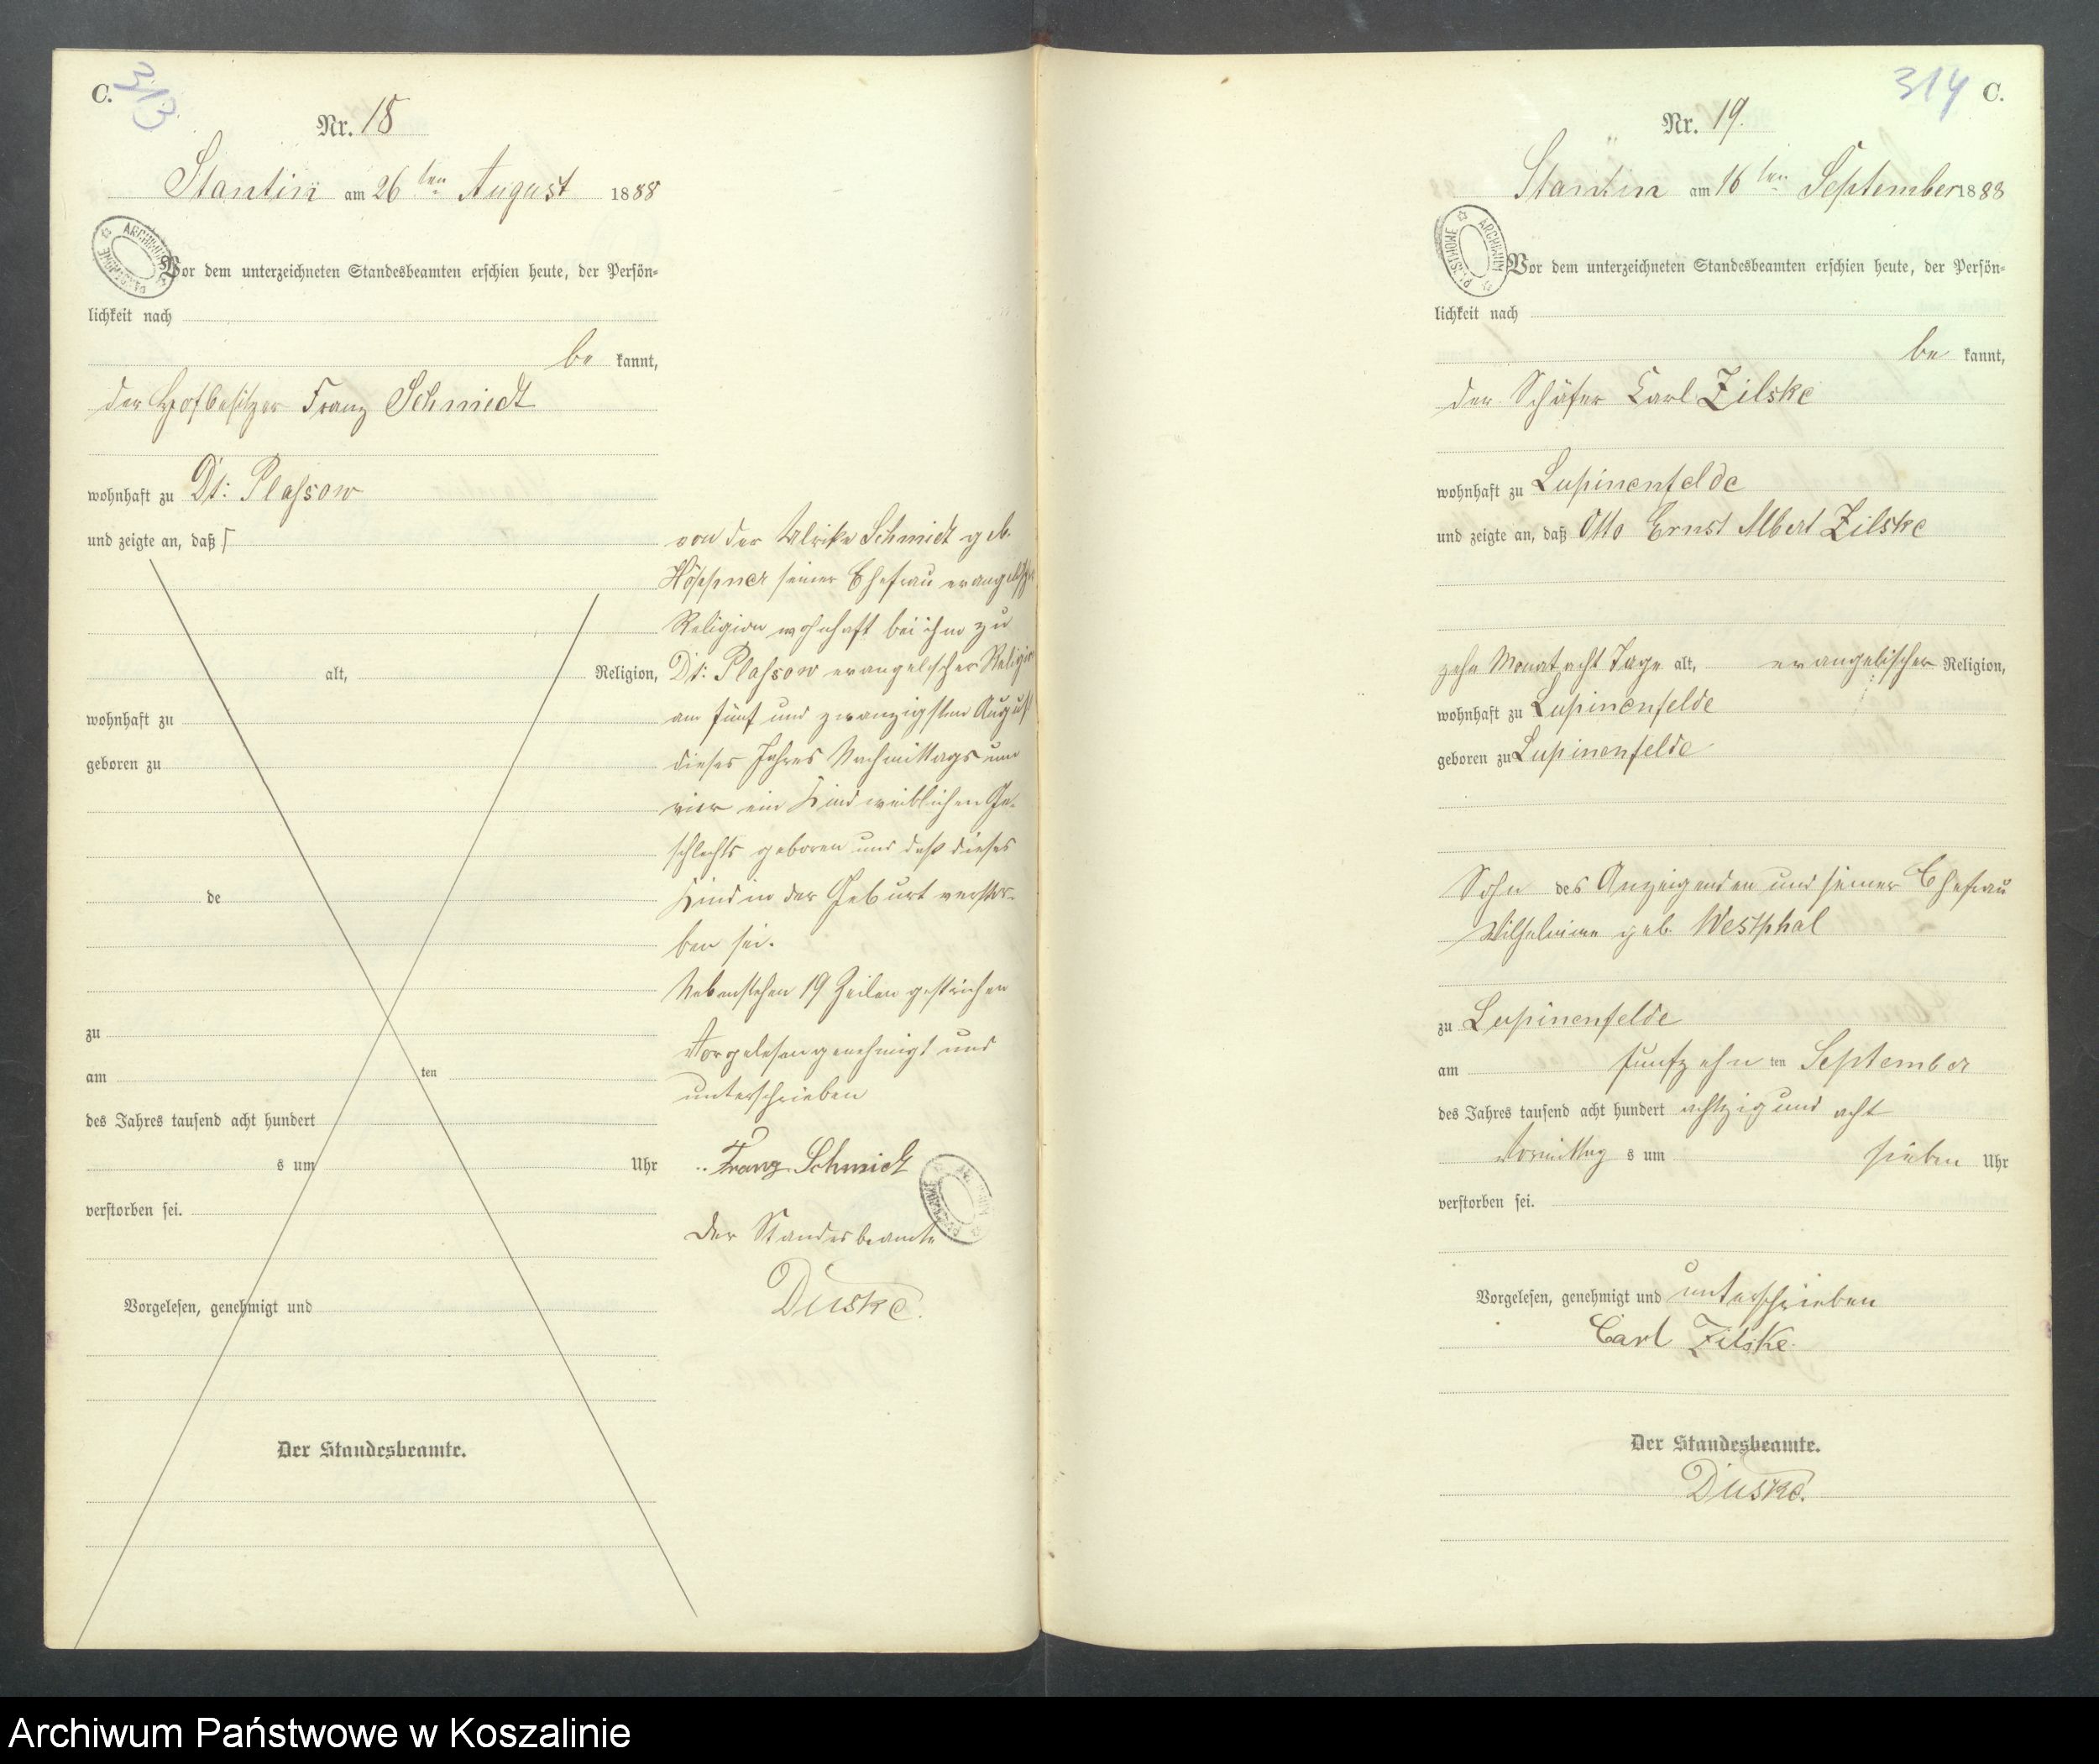 C.
313
Nr. 18
Stantin am 26 ten August 1888
Vor dem unterzeichneten Standesbeamten erschien heute, der Persön-
lichkeit nach
be kannt,
der Hofbesitzer Franz Schmidt
wohnhaft zu Dt: Plassow
und zeigte an, daß
alt, Religion,
wohnhaft zu
geboren zu
de
zu
am ten
des Jahres tausend acht hundert
s um Uhr
verstorben sei.
Vorgelesen, genehmigt und
Der Standesbeamte.
von der Ulrike Schmidt geb.
Höppner seiner Ehefrau evangelischer
Religion wohnhaft bei ihm zu
Dt: Plassow evangelischer Religion
am fünf und zwanzigsten August
dieses Jahres Nachmittags um
vier ein Kind weiblichen Ge-
schlechts geboren und daß dieses
Kind in der Geburt verstor-
ben sei.
Nebenstehen 19 Zeilen gestrichen
Vorgelesen genehmigt und
unterschrieben
Franz Schmidt
Der Standesbeamte
Duske.
314
C.
Nr. 19.
Stantin am 16 ten September 1888
Vor dem unterzeichneten Standesbeamten erschien heute, der Persön-
lichkeit nach
be kannt,
der Schäfer Carl Zilske
wohnhaft zu Lupinenfelde
und zeigte an, daß Otto Ernst Albert Zilske
zehn Monat acht Tage alt, evangelischer Religion,
wohnhaft zu Lupinenfelde
geboren zu Lupinenfelde
Sohn des Anzeigenden und seiner Ehefrau
Wilhelmine geb. Westphal
zu Lupinenfelde
am fünfzehn ten September
des Jahres tausend acht hundert achtzig und acht
Vormittag s um sieben Uhr
verstorben sei.
Vorgelesen, genehmigt und unterschrieben
Carl Zilske.
Der Standesbeamte.
Duske.
Archiwum Państwowe w Koszalinie